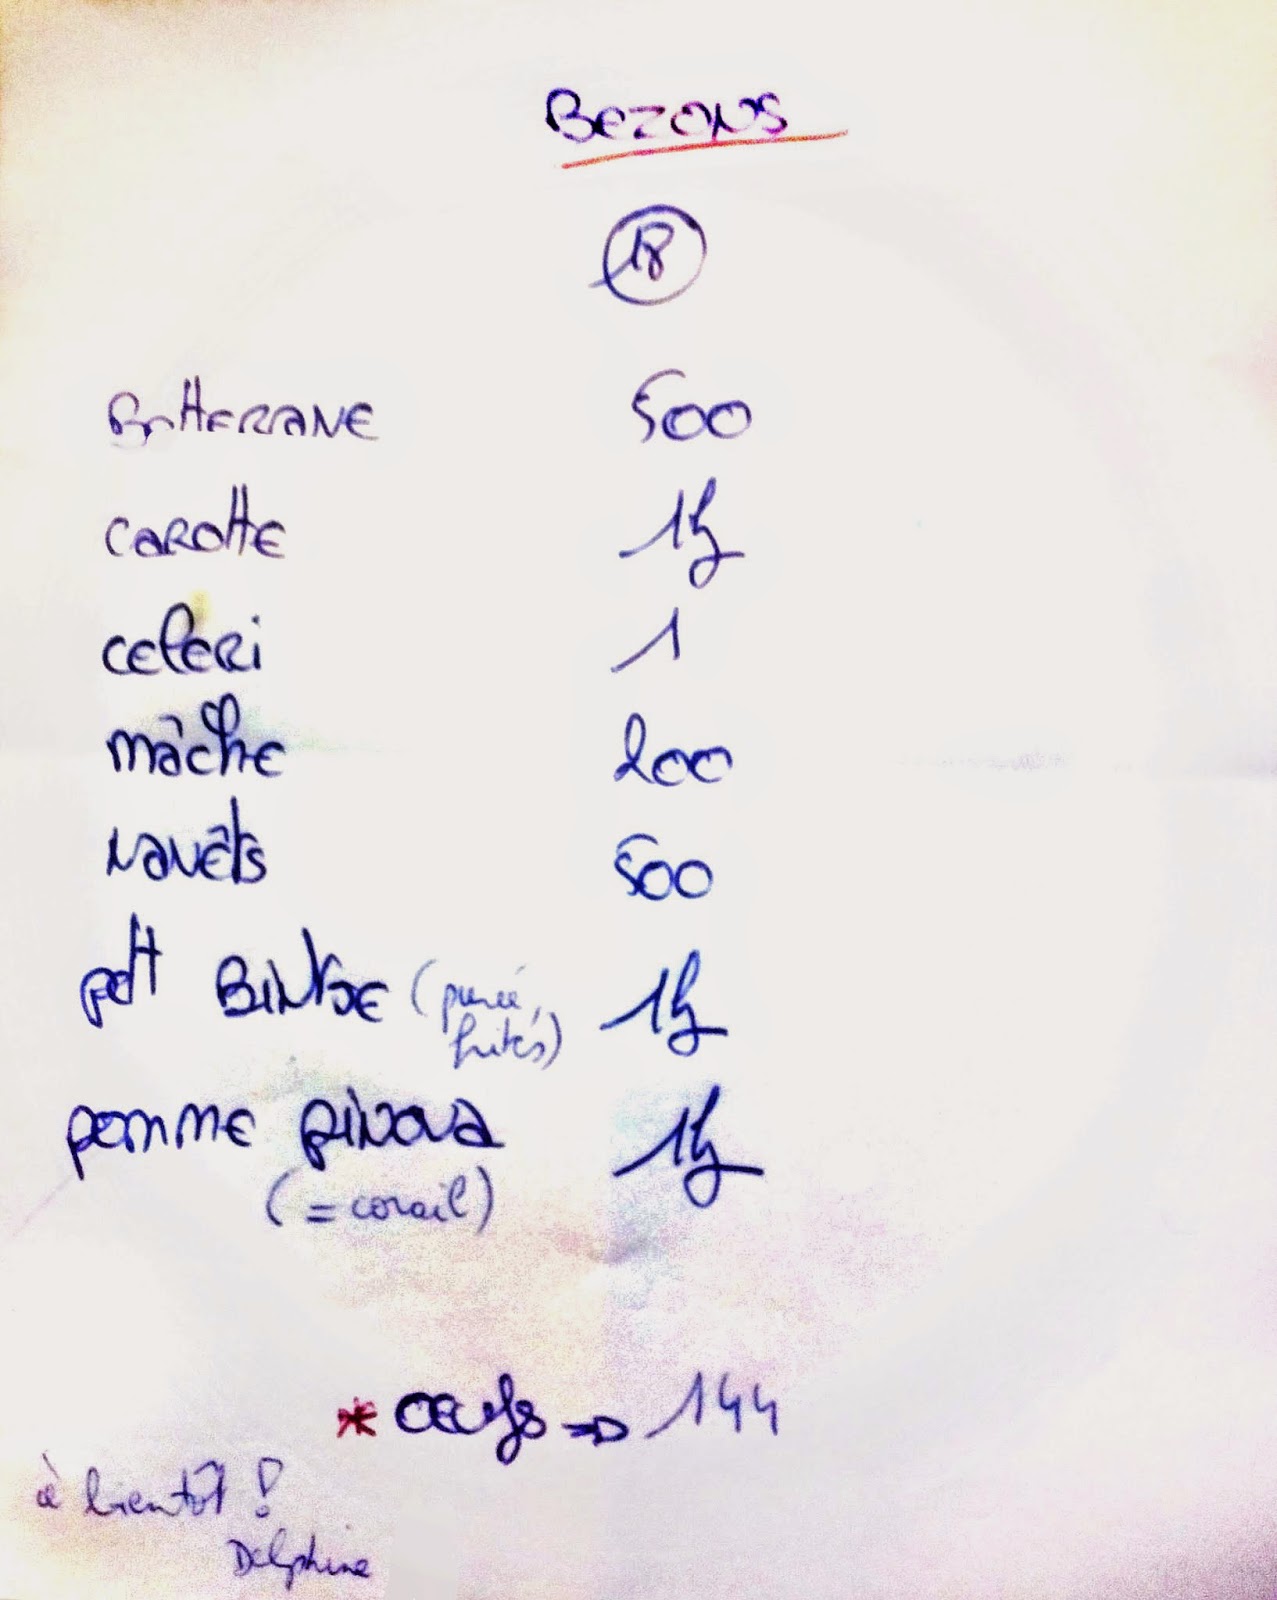 Bezons
18
Betterave 500
Carotte 1kg
Celeri 1
Mâche 200
Navets 500
pdt Bintje (purée, 1kg
frites)
pomme pinova 1kg
(= corail)
* Oeufs => 144
à bientôt !
Delphine